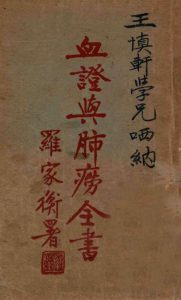 王慎軒學兄哂納
血證與肺癆全書
羅家衡署